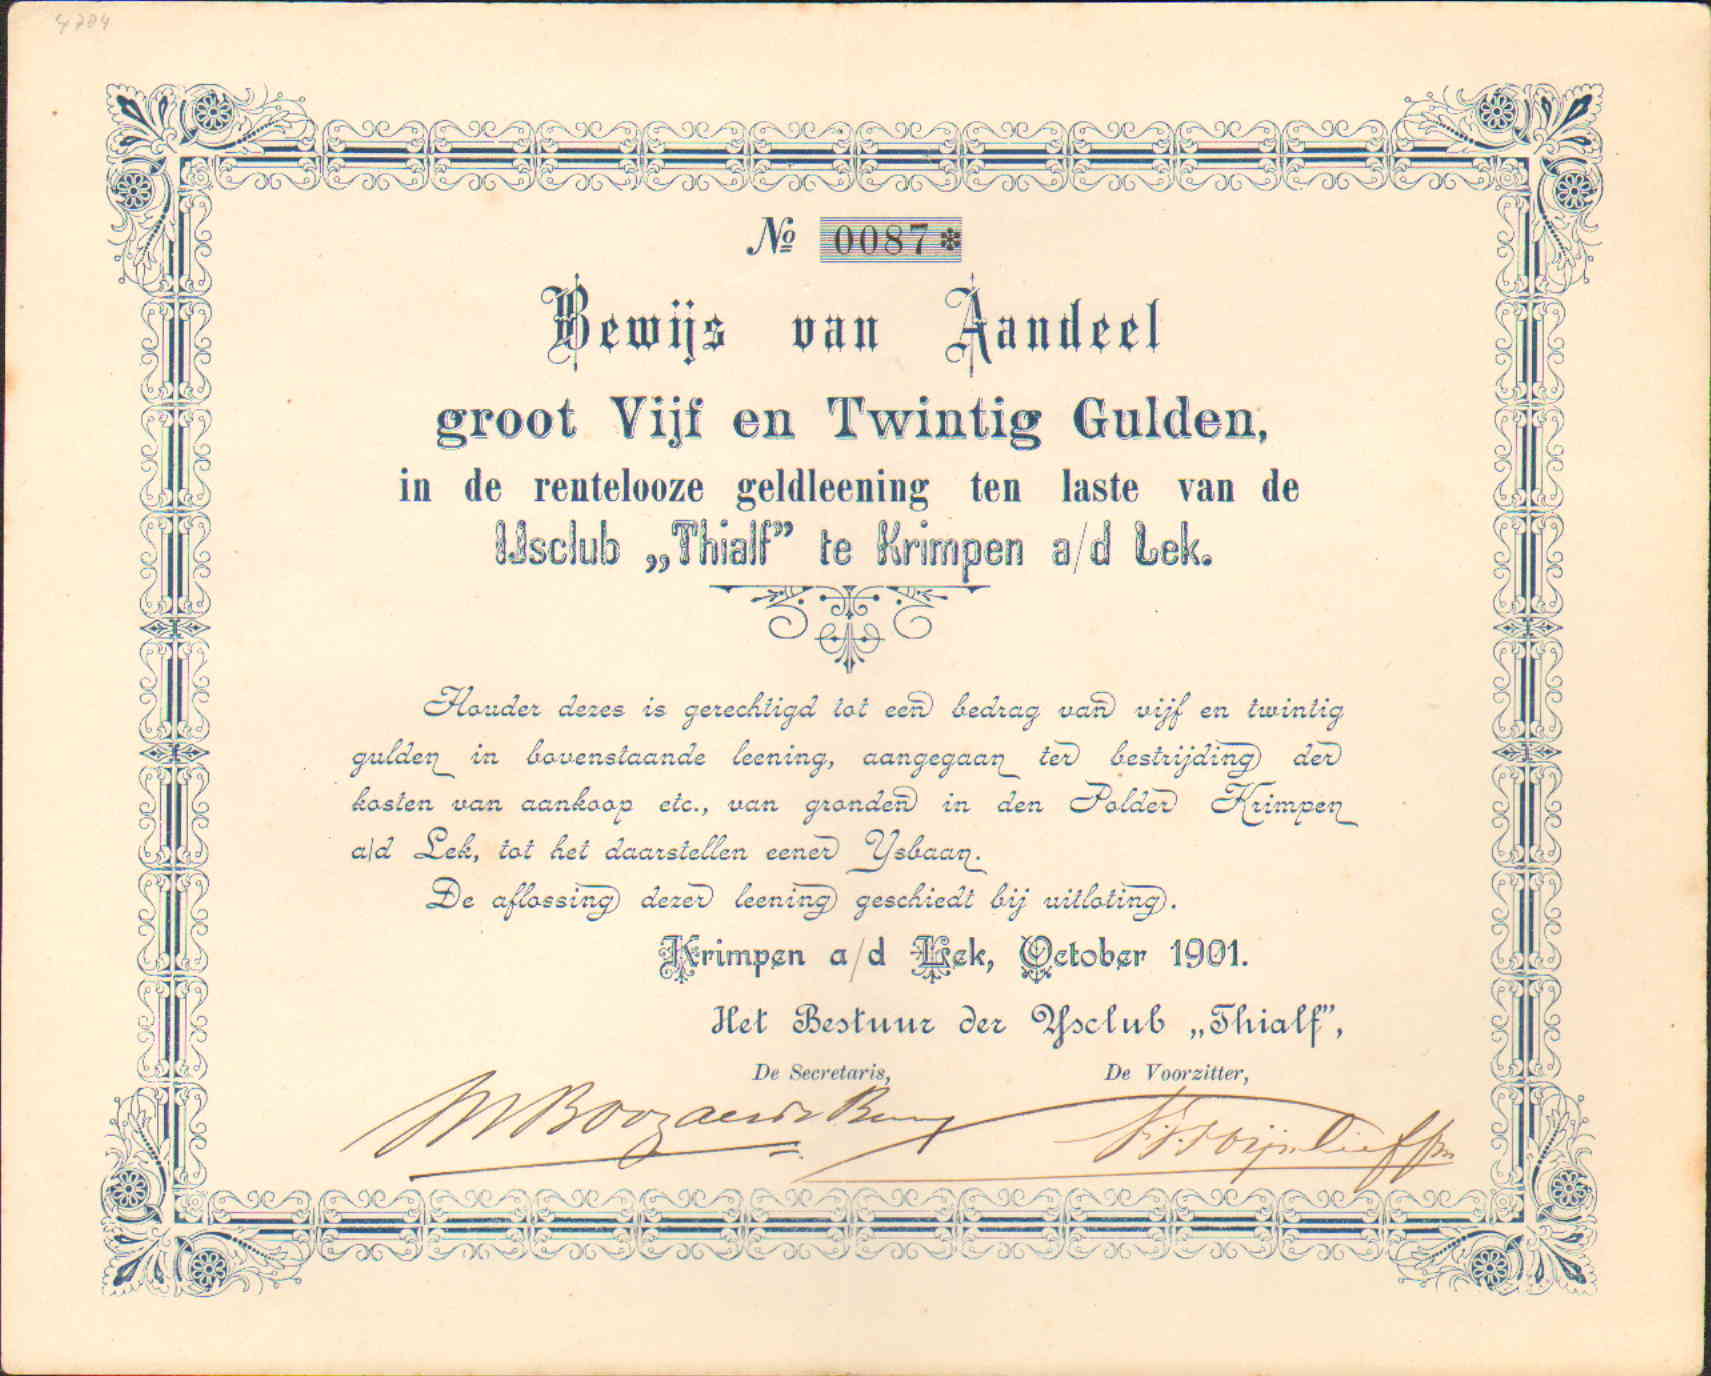 4704
Nº 0087*
Bewijs van Aandeel
groot Vijf en Twintig Gulden,
in de rentelooze geldleening ten laste van de
IJsclub „Thialf” te Krimpen a/d Lek.
Houder dezes is gerechtigd tot een bedrag van vijf en twintig
gulden in bovenstaande leening, aangegaan ter bestrijding der
kosten van aankoop etc., van gronden in den Polder Krimpen
a/d Lek, tot het daarstellen eener Ysbaan.
De aflossing dezer leening geschiedt bij uitloting.
Krimpen a/d Lek, October 1901.
Het Bestuur der Ysclub „Thialf”,
De Secretaris, De Voorzitter,